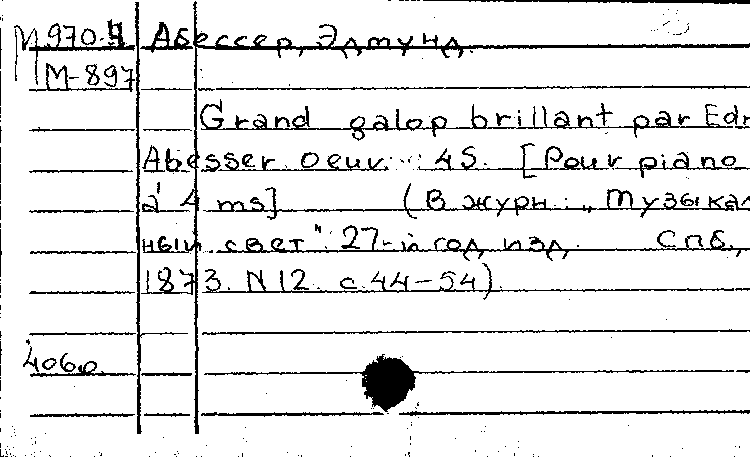 М970.4 Абессер, Эдмунд.
М-897
Grand galop brillant par Edm
Abesser. Oeuv. 45. [Pour piano
à 4 ms] (В журн.: „Музыкал
ный свет". 27-й год изд. Спб.,
1873. N 12. с. 44-54).
4060